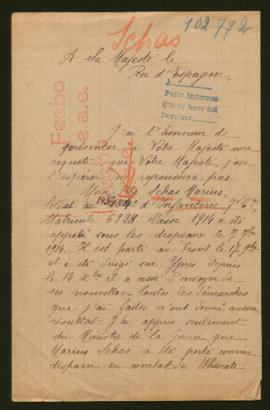 102.772
Schas
A Sa Majesté le
Roi d'Espagne,
A
Pedir informes
Que se hace así
Devolver
Fecho
e.a.e.
J'ai l'honneur de
présenter à Votre Majesté une
requête que Votre Majesté, j'ose
l'espérer ne repoussera pas.
Mon fils Schas Marius
soldat au d'Infanterie
Matricule 6328 classe 1914 a été
appelé sous les drapeaux le 7. 7bre
1914. Il est parti au front le 17. 9bre
et a été dirigé sur Ypres depuis
le 14 Xbre il a cessé d'envoyer de
ses nouvelles. Toutes les démarches
que j'ai faites n'ont donné aucun
résultat. J'ai appris seulement
du Ministre de la guerre que
Marius Schas a été porté comme
disparu au combat de